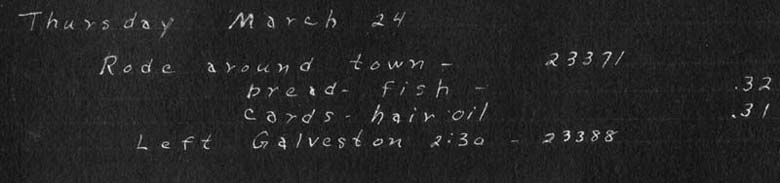 Thursday March 24
Rode around town - 23371
bread - fish - .32
cards - hair oil .31
Left Galveston 2:30 - 23388